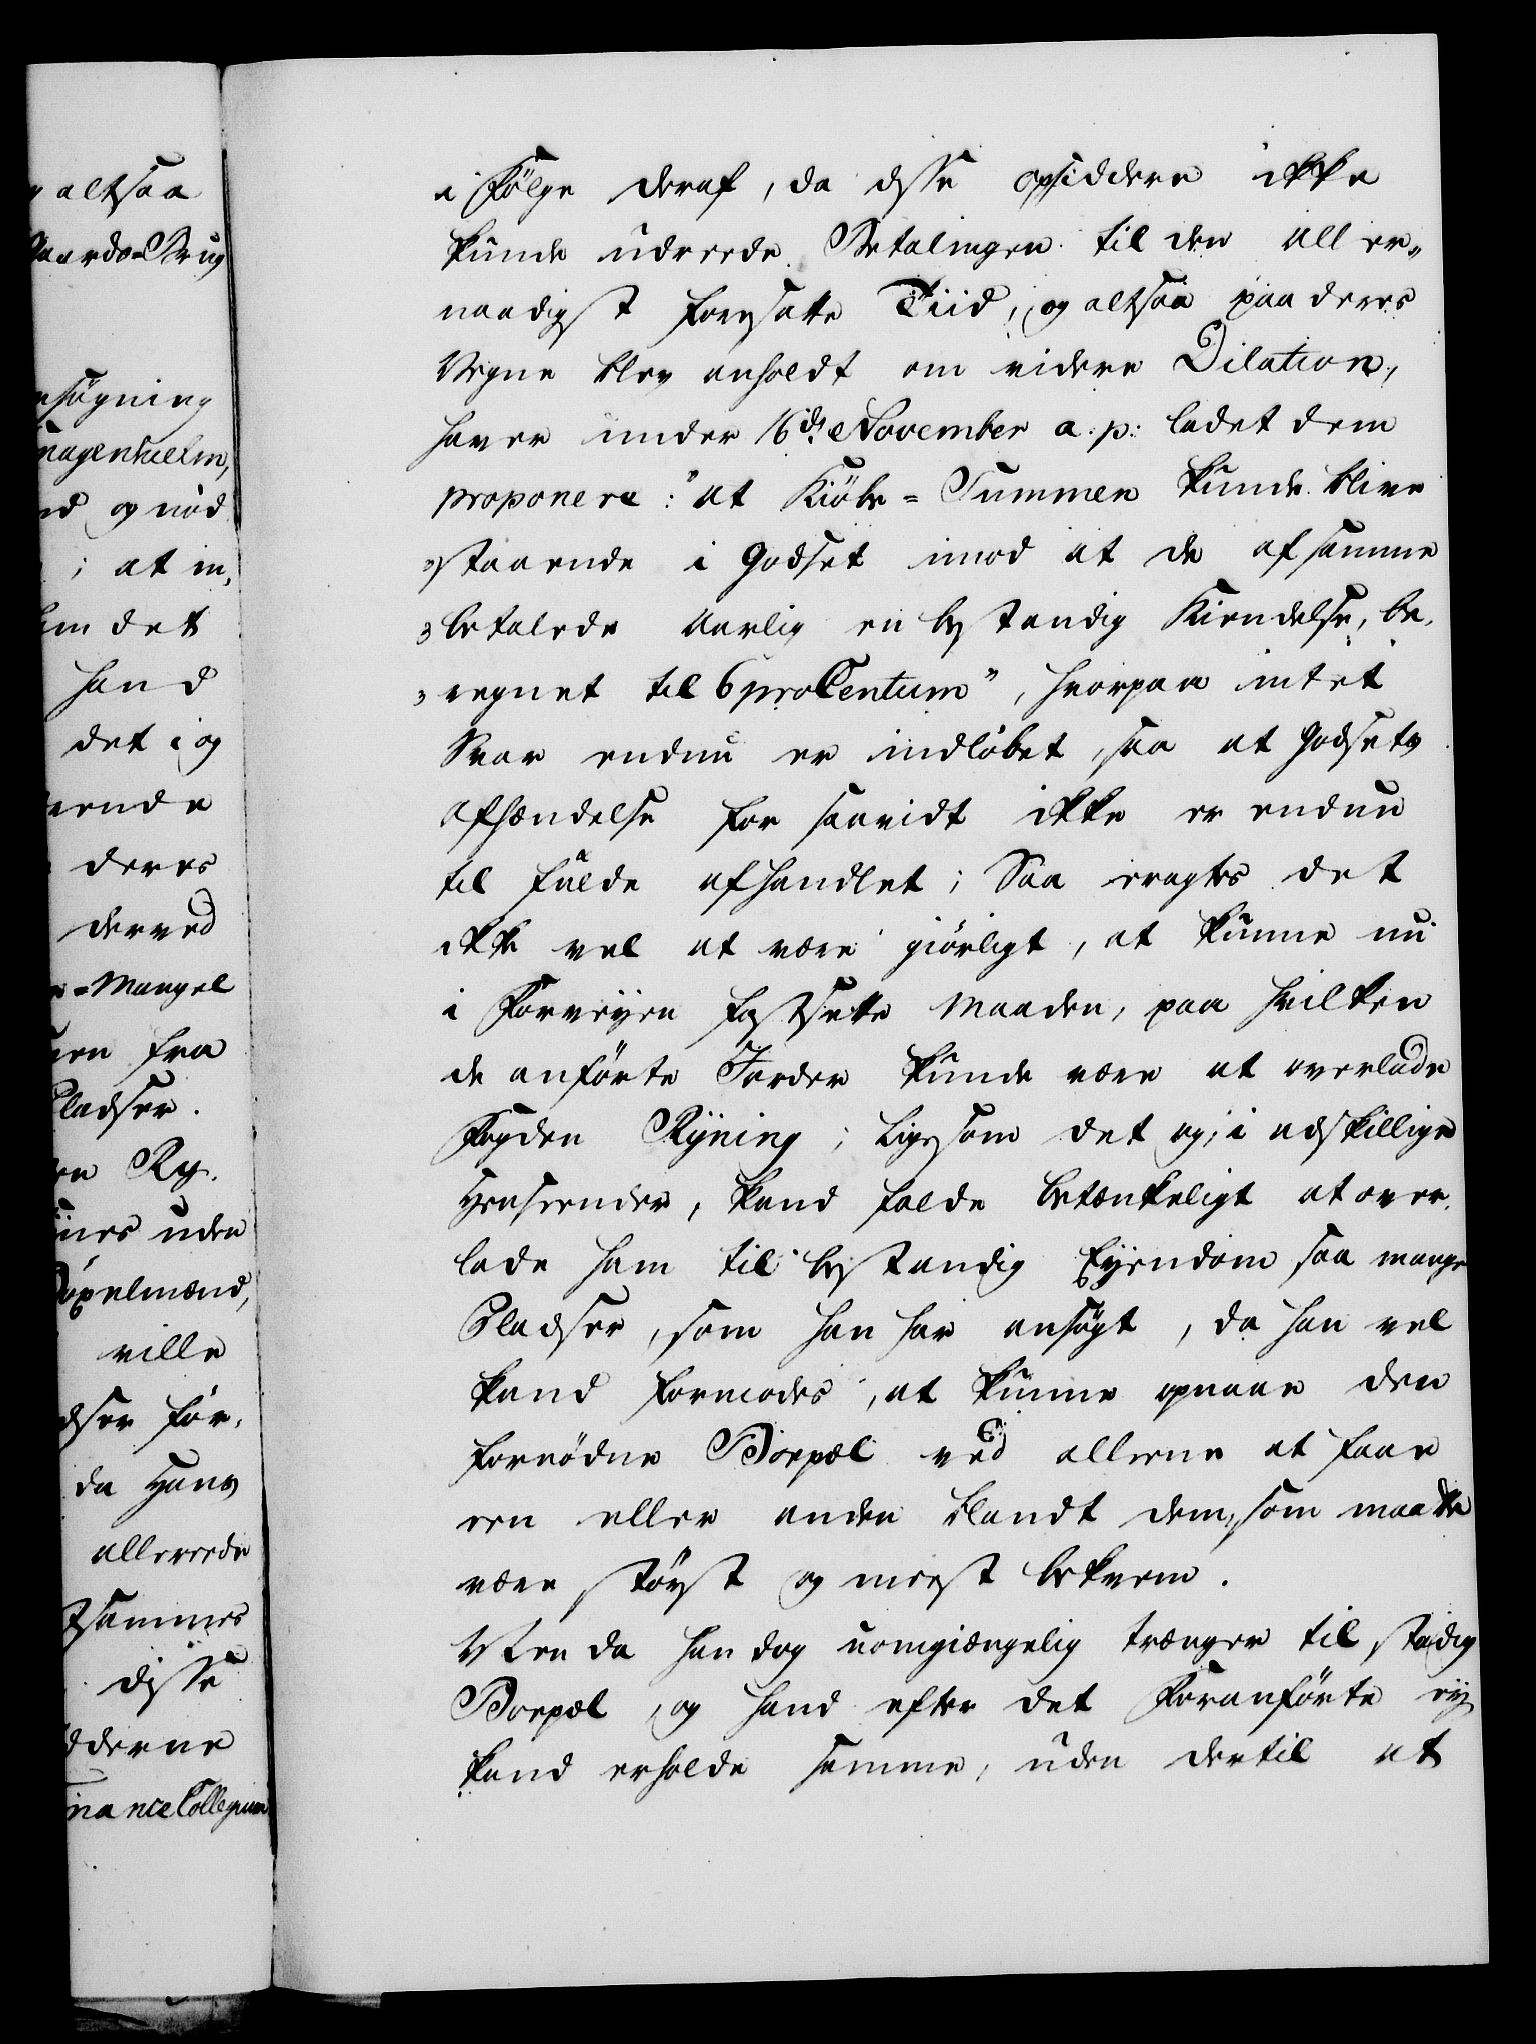 altsaa
aards-Brug
nsøgning
nagenhielm,
nd og nød
; at in,
em det
hand
det i og
ende
deres
derved
=Mangel
en fra
Pladser.
en Ry.
ines uden
Døpelmænd,
ville
dser før,
da Hans
allereede
tsammes
disse
derne
nance Collegium
i Følge deraf, da disse opsiddere ikke
kunde udreede Betalingen til den aller„
naadigst foresatte Tiid, og altsaa paa deres
Vegne blev anholdt om videre Dilation,
haver under 16de November a. p: ladet dem
proponere: "at Kiøbe=Summen kunde blive
"staaende i Godset imod at de af samme
"betalede Aarlig en bestandig Kiendelse, be,
"regnet til 6 pro Centum", hvorpaa intet
Svar endnu er indløbet, saa at Godsets
Afhændelse for saavidt ikke er endnu
til fulde afhandlet; Saa eragtes det
ikke vel at være giørligt, at kunne nu
i Forveyen fastsette Maaden, paa hvilken
de anførte Jorder kunde være at overlade
Fogden Ryning; Ligesom det og, i adskillige
Henseender, kand falde betænkeligt at over,
lade ham til bestandig Eyendom saa mange
Pladser, som han har ansøgt, da han vel
kand formodes, at kunne opnaae den
fornødne Boepæl ved alleene at faae
een eller anden blandt dem, som maatte
være størst og meest beqvem.
Men da han dog uomgiængelig trænger til stadig
Boepæl, og hand efter det Foranførte ey
kand erholde samme, uden dertil at